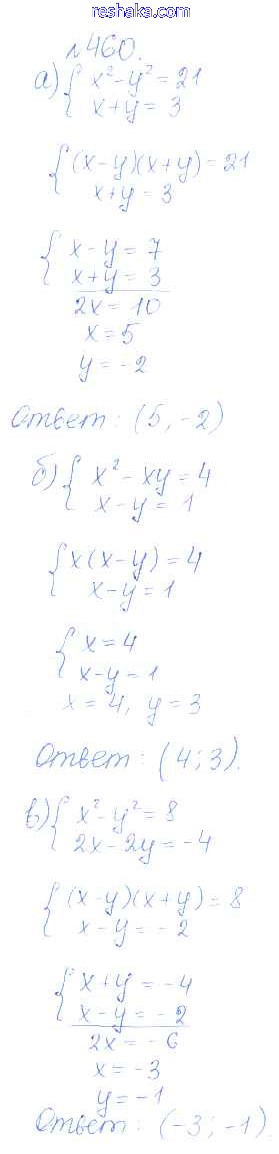 reshaka.com
№460.
а) { x² - y² = 21
x + y = 3
{ (x - y)(x + y) = 21
x + y = 3
{ x - y = 7
x + y = 3
2x = 10
x = 5
y = -2
Ответ: (5, -2)
б) { x² - xy = 4
x - y = 1
{ x(x - y) = 4
x - y = 1
{ x = 4
x - y = 1
x = 4, y = 3
Ответ: (4; 3).
в) { x² - y² = 8
2x - 2y = -4
{ (x - y)(x + y) = 8
x - y = -2
{ x + y = -4
x - y = -2
2x = -6
x = -3
y = -1
Ответ: (-3; -1).